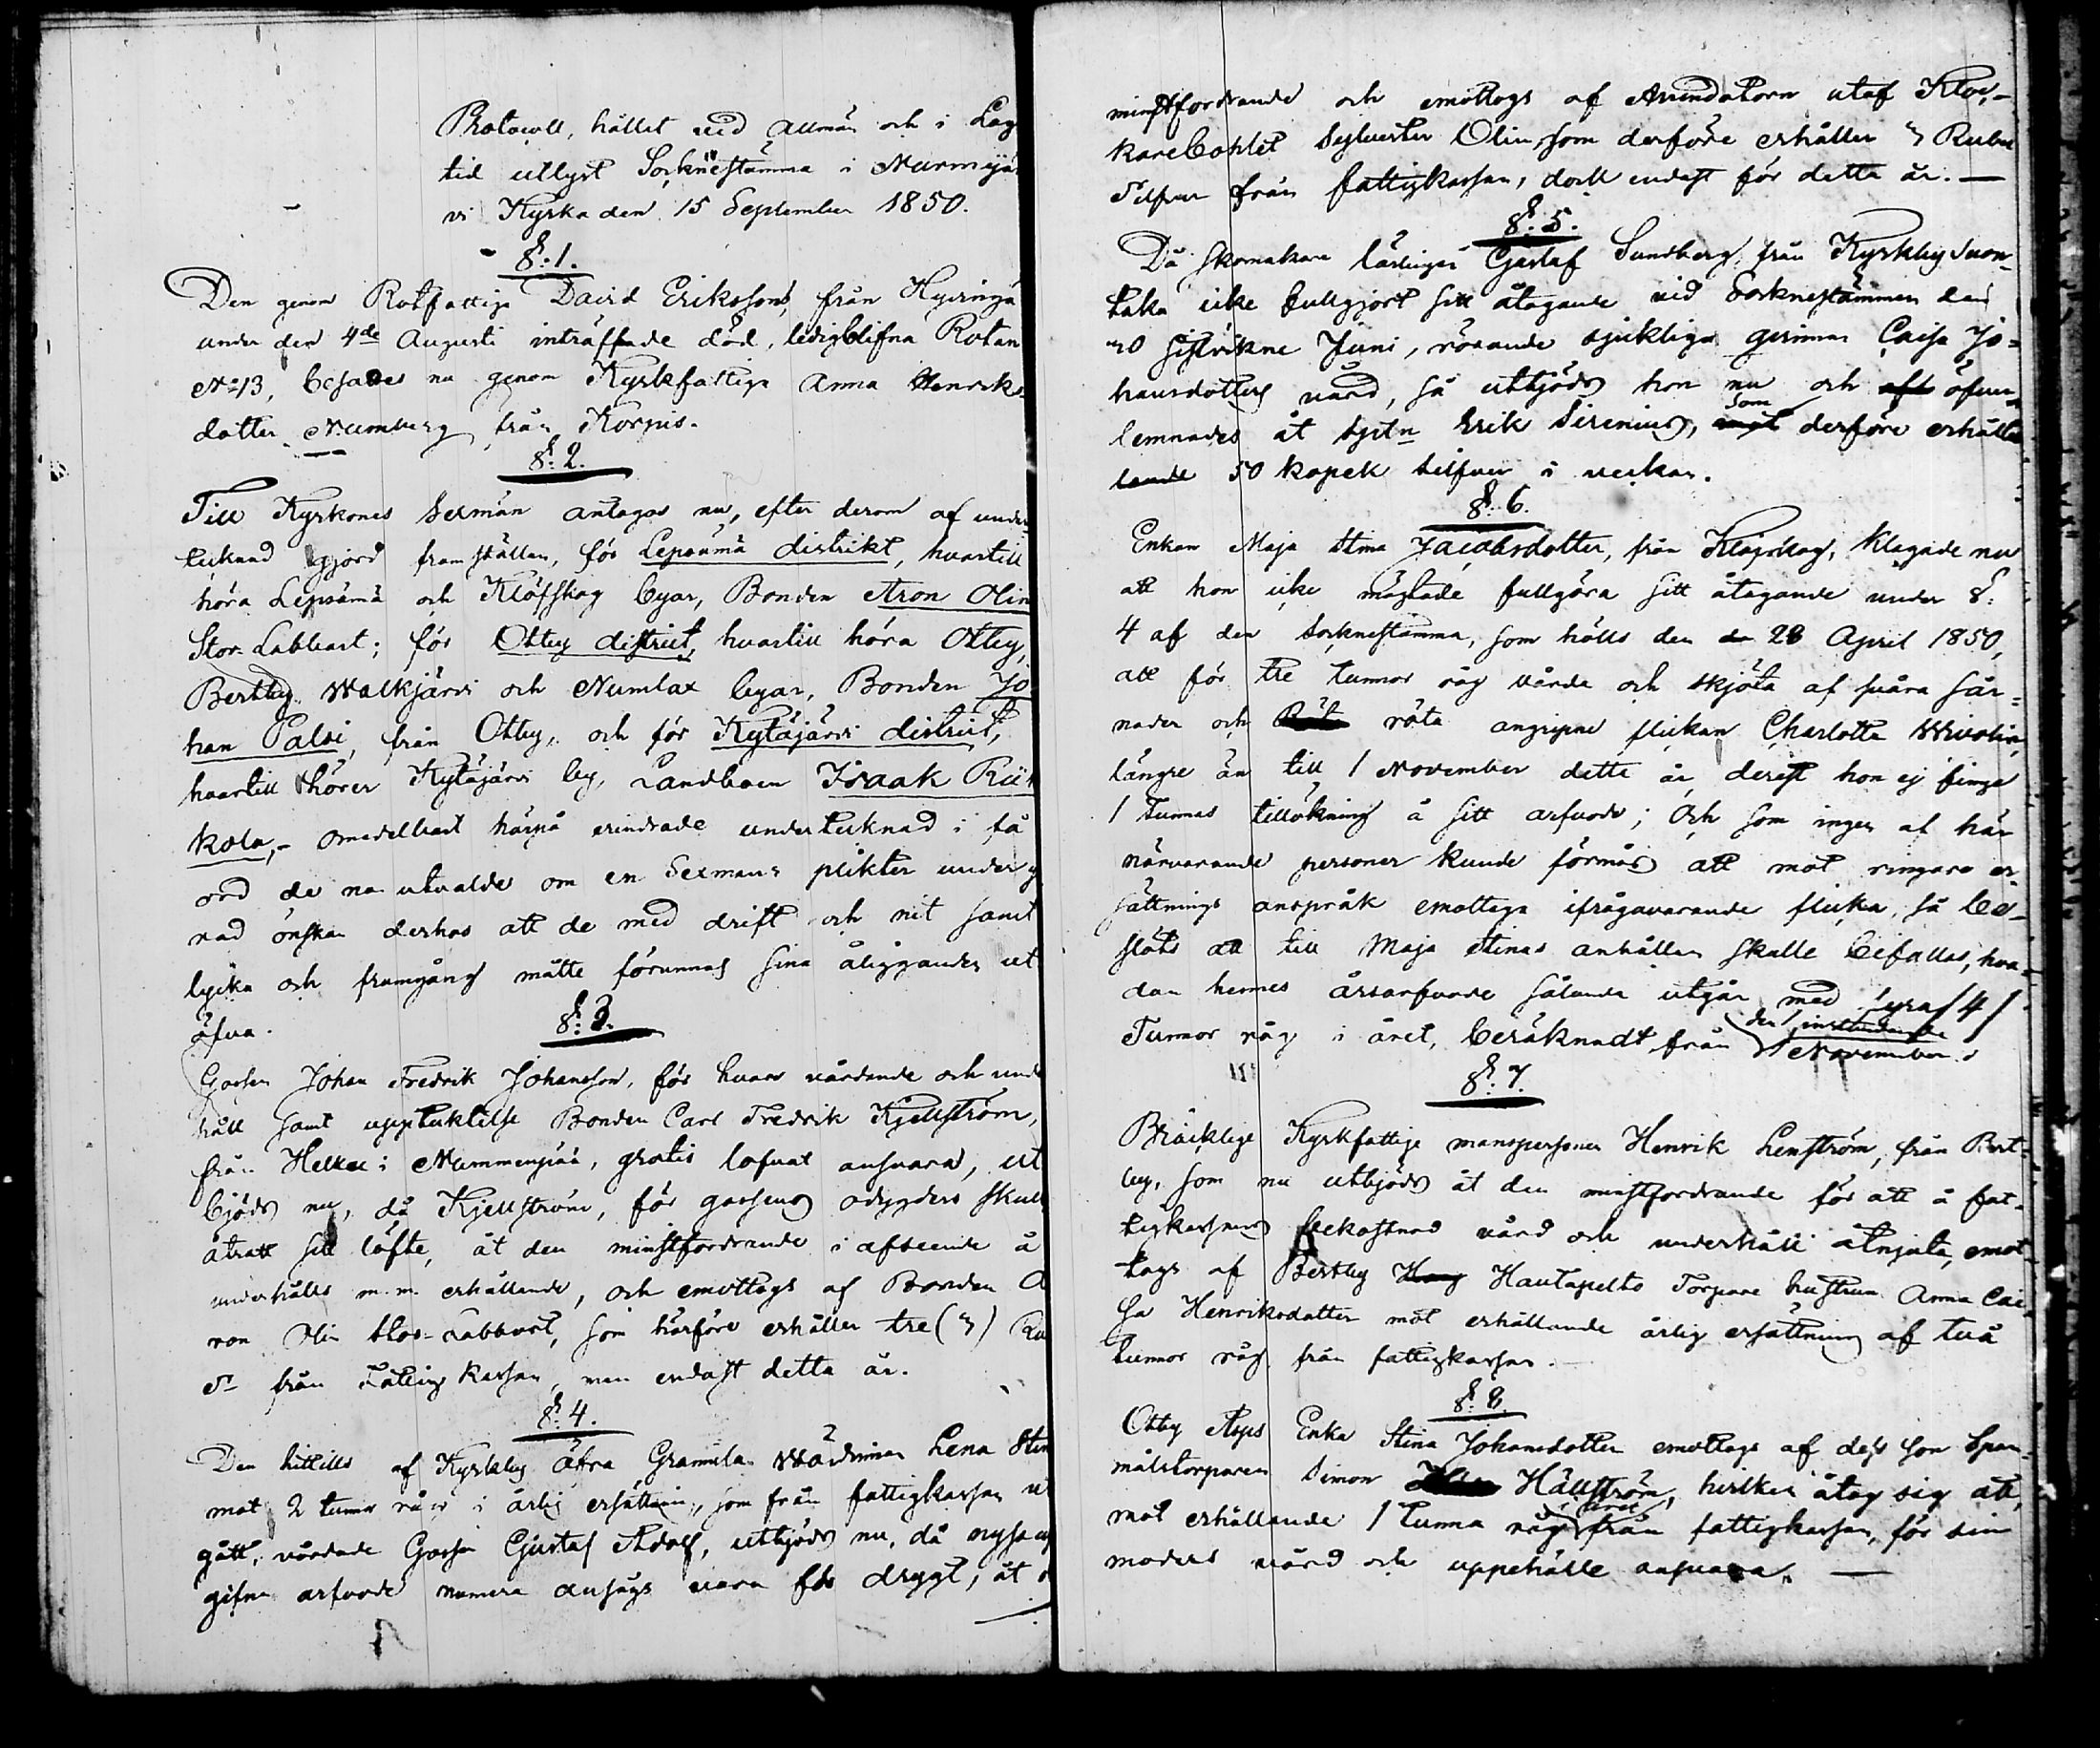 Protocoll, hållet vid allmän och i Lag
tid utlyst Socknestämma i Nurmijär
vi Kyrka den 15 September 1850.
§. 1.
Den genom Rotfattige David Erikssons, från Hyvinge
under den 4de Augusti inträffade död, ledigblifna Rotan
No 13, besattes nu genom Kyrkfattige Anna Henriks-
dotter Numberg från Korpis.
§. 2.
Till Kyrkones Sexmän antogos nu, efter derom af under-
tecknad gjord framställan, för Lepsämä distrikt, hvartill
höra Lepsämä och Klöfskog byar, Bonden Aron Olin
Stor-Labbart; för Ottby district, hvartill höra Ottby,
Bertby, Walkjärvi och Numlax byar, Bonden Jo
han Palsi, från Ottby, och för Kytäjärvi district,
hvartill hörer Kytäjärvi by, Landboen Isaak Rii
kola,- omedelbart härpå erindrade undertecknad i få
ord de nu utvalde om en Sexmans plikter under y
nad önskan derhos att de med drift och nit samt
lycka och framgång måtte förunnas sina åligganden ut
öfva.
§. 3.
Gossen Johan Fredrik Johansson, för hvars vårdande och unde
håll samt upptuktelse Bonden Carl Fredrik Kjellström,
från Helka i Nummenpää, gratis lofvat ansvara, ut
bjöds nu, då Kjellström, för gossens odygders skull
åtratt sitt löfte, åt den minstfordrande i afseende å
underhålls m.m. erhållande, och emottogs af Bonden A
ron Olin Stor-Labbart, som härföre erhåller tre (3) Ru
Sr från Fattigkassan, men endast detta år.
§. 4.
Den hittills af Kyrkby Åtra Grannila Mårdinnan Lena Stin
mot 2 tunnor råg i årlig ersättning, som från fattigkassan ut
gått, vårdade Gossen Gustaf Adolf, utbjöds nu, då nyss up
gifne arfvode numera ansågs vara för drygt, åt d
minstfordrande och emottogs af Arendatorn utaf Kloc-
karebohlet Sylvester Olin, som derföre erhåller 3 Rubel
Silfver från fattigkassan, dock endast för detta år. —
§. 5.
Då Skomakare lärlingen Gustaf Sundberg från Kyrkby Suon-
taka icke fullgjort sitt åtagande vid Sockenstämman den
30 sistvikne Juni, rörande sjukliga qvinnan Caisa Jo-
hansdotters vård, så utbjöds hon nu och öfver-
lemnades åt Sytn Erik Sirenius, som derföre erhåller
50 kopek silfver i veckan.
§. 6.
Enkan Maja Stina Jacobsdotter, från Klöfskog, klagade nu
att hon icke mäktade fullgöra sitt åtagande under §.
4 af den Sockenstämma, som hölls den 28 April 1850,
att för tre tunnor råg vårda och skjöta af svåra sår-
nader och röta angripne flickan Charlotta Wivolin,
längre än till 1 November detta år, derest hon ej finge
1 Tunnas tillökning å sitt arfvode; Och som ingen af här
närvarande personer kunde förmås att mot ringare er-
sättnings anspråk emottaga ifrågavarande flicka, så be-
slöts att till Maja Stinas anhållan skulle bifallas, hva-
dan hennes årsarfvode sålunda utgår med fyra /4/
Tunnor råg i året, beräknadt från den 1 instundande November.
§. 7.
Bräcklige Kyrkfattige manspersonen Henrik Lenström, från Bert-
by, som nu utbjöds åt den minstfordrande för att å fat-
tigkassans bekostnad vård och underhåll åtnjuta, emot-
togs af Bertby Hautapelto Torpare hustrun Anna Cai-
sa Henriksdotter mot erhållande årlig ersättning af två
tunnor råg från fattigkassan.
§. 8.
Ottby Asps Enka Stina Johansdotter emottogs af dess son Span-
målstorparen Simon Hällström, hvilken åtog sig att,
mot erhållande 1 Tunna råg året från fattigkassan, för sin
moders vård och uppehälle ansvara. —